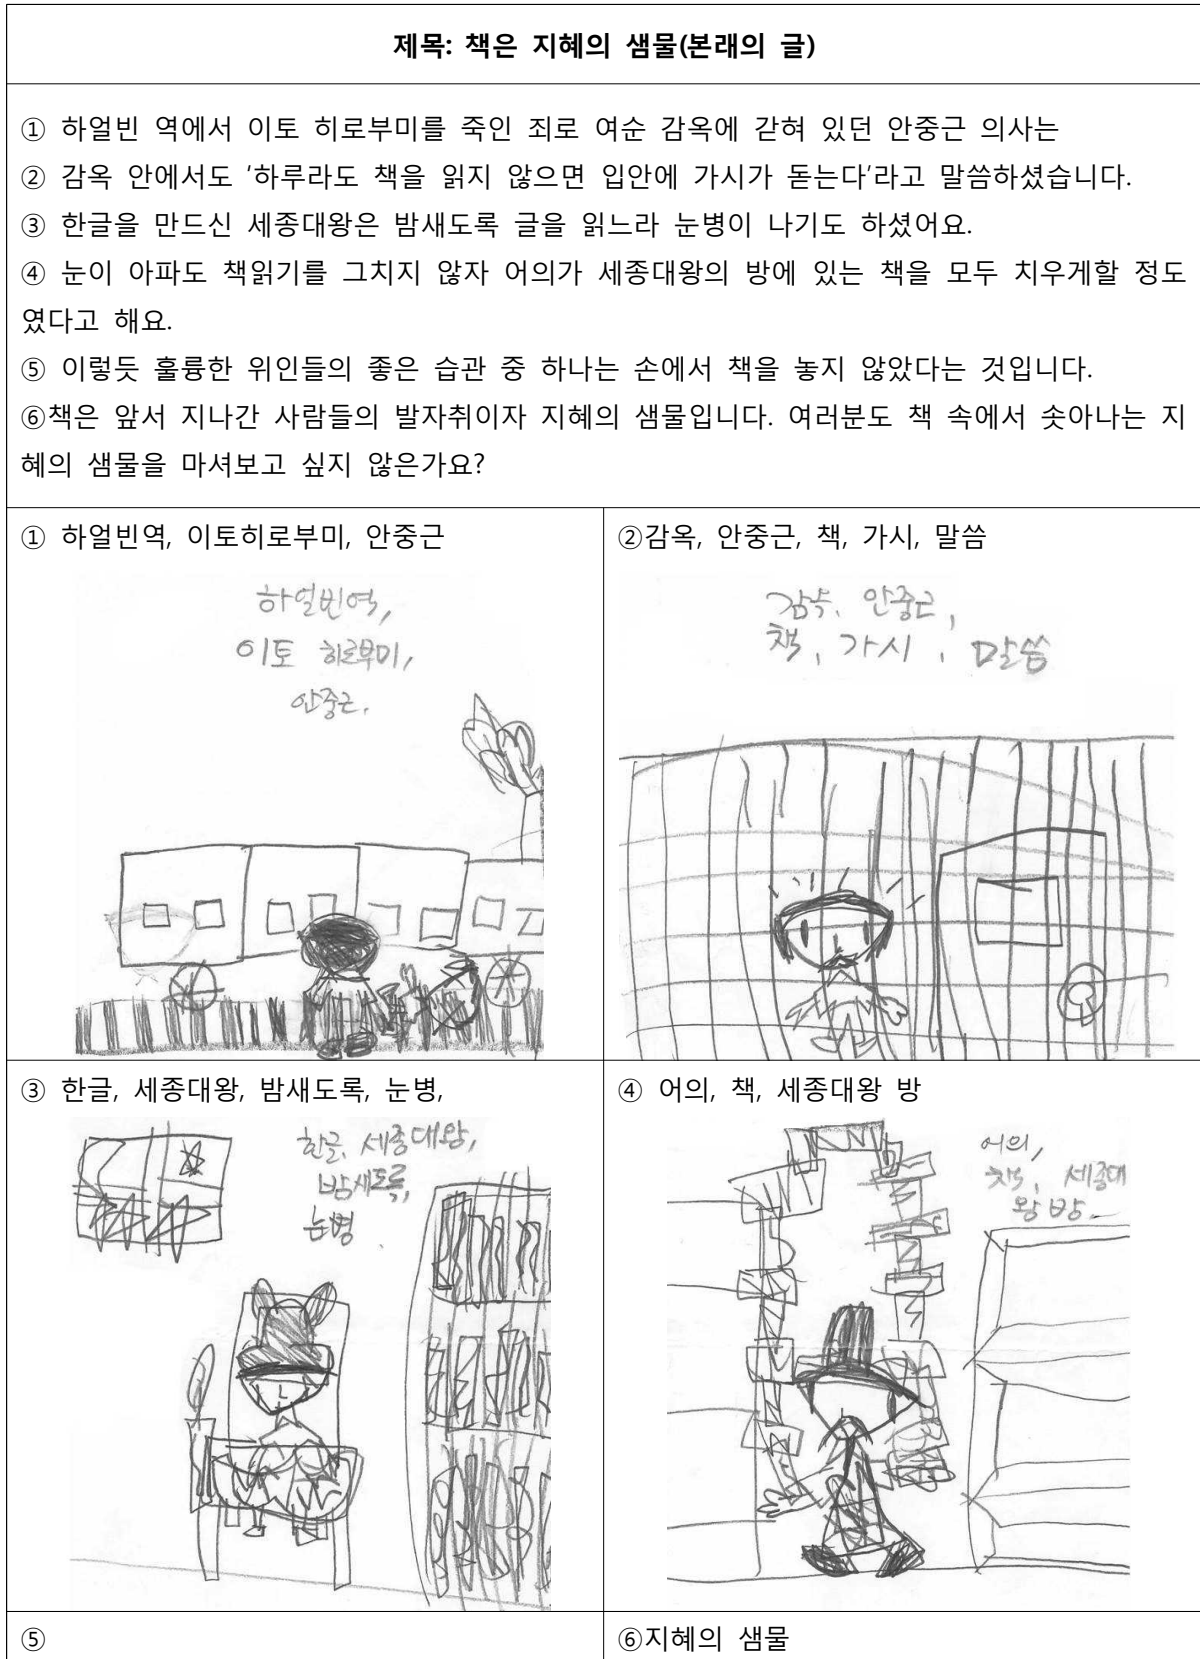 제목: 책은 지혜의 샘물(본래의 글)
① 하얼빈 역에서 이토 히로부미를 죽인 죄로 여순 감옥에 갇혀 있던 안중근 의사는
② 감옥 안에서도 '하루라도 책을 읽지 않으면 입안에 가시가 돋는다'라고 말씀하셨습니다.
③ 한글을 만드신 세종대왕은 밤새도록 글을 읽느라 눈병이 나기도 하셨어요.
④ 눈이 아파도 책읽기를 그치지 않자 어의가 세종대왕의 방에 있는 책을 모두 치우게할 정도
였다고 해요.
⑤ 이렇듯 훌륭한 위인들의 좋은 습관 중 하나는 손에서 책을 놓지 않았다는 것입니다.
⑥책은 앞서 지나간 사람들의 발자취이자 지혜의 샘물입니다. 여러분도 책 속에서 솟아나는 지
혜의 샘물을 마셔보고 싶지 않은가요?
① 하얼빈역, 이토히로부미, 안중근
하얼빈역,
이토 히로부미,
안중근.
②감옥, 안중근, 책, 가시, 말씀
감옥, 안중근,
책, 가시, 말씀
③ 한글, 세종대왕, 밤새도록, 눈병,
한글, 세종대왕,
밤새도록,
눈병
④ 어의, 책, 세종대왕 방
어의,
책, 세종대
왕 방
⑤
⑥지혜의 샘물